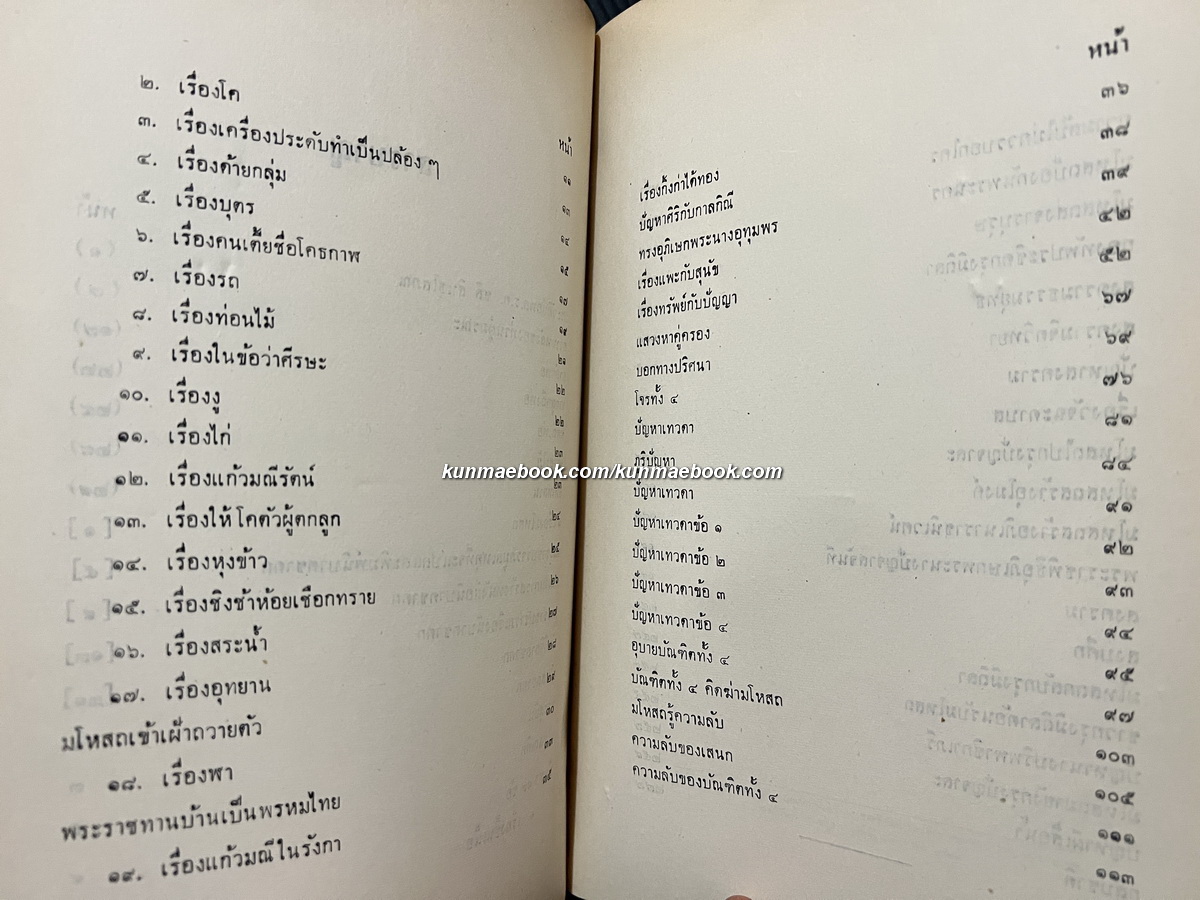 หน้า
๒. เรื่องโค ๑๑
๓. เรื่องเครื่องประดับทำเป็นปล้อง ๆ ๑๓
๔. เรื่องด้ายกลุ่ม ๑๔
๕. เรื่องบุตร ๑๕
๖. เรื่องคนเตี้ยชื่อโคธกาฬ ๑๗
๗. เรื่องรถ ๑๙
๘. เรื่องท่อนไม้ ๒๑
๙. เรื่องในข้อว่าศีรษะ ๒๒
๑๐. เรื่องงู ๒๒
๑๑. เรื่องไก่ ๒๓
๑๒. เรื่องแก้วมณีรัตน์ ๒๓
๑๓. เรื่องให้โคตัวผู้ตกลูก ๒๔
๑๔. เรื่องหุงข้าว ๒๕
๑๕. เรื่องชิงช้าห้อยเชือกทราย ๒๖
๑๖. เรื่องสระน้ำ ๒๗
๑๗. เรื่องอุทยาน ๒๘
มโหสถเข้าเฝ้าถวายตัว ๒๙
๑๘. เรื่องฬา ๓๐
พระราชทานบ้านเป็นพรหมไทย ๓๓
๑๙. เรื่องแก้วมณีในรังกา ๓๕
หน้า
เรื่องกิ้งก่าได้ทอง ๓๖
ปัญหาศิริกับกาลกิณี ๓๘
ทรงอภิเษกพระนางอุทุมพร ๓๙
เรื่องแพะกับสุนัข ๔๒
เรื่องทรัพย์กับปัญญา ๕๒
แสวงหาคู่ครอง ๖๗
บอกทางปริศนา ๖๙
โจรทั้ง ๔ ๗๖
ปัญหาเทวดา ๘๑
ภูริปัญหา ๘๔
ปัญหาเทวดา ๙๑
ปัญหาเทวดาข้อ ๑ ๙๒
ปัญหาเทวดาข้อ ๒ ๙๓
ปัญหาเทวดาข้อ ๓ ๙๔
ปัญหาเทวดาข้อ ๔ ๙๕
อุบายบัณฑิตทั้ง ๔ ๙๗
บัณฑิตทั้ง ๔ คิดฆ่ามโหสถ ๑๐๓
มโหสถรู้ความลับ ๑๐๕
ความลับของเสนก ๑๑๑
ความลับของบัณฑิตทั้ง ๔ ๑๑๓
kunmaebook.com/kunmaebook.com